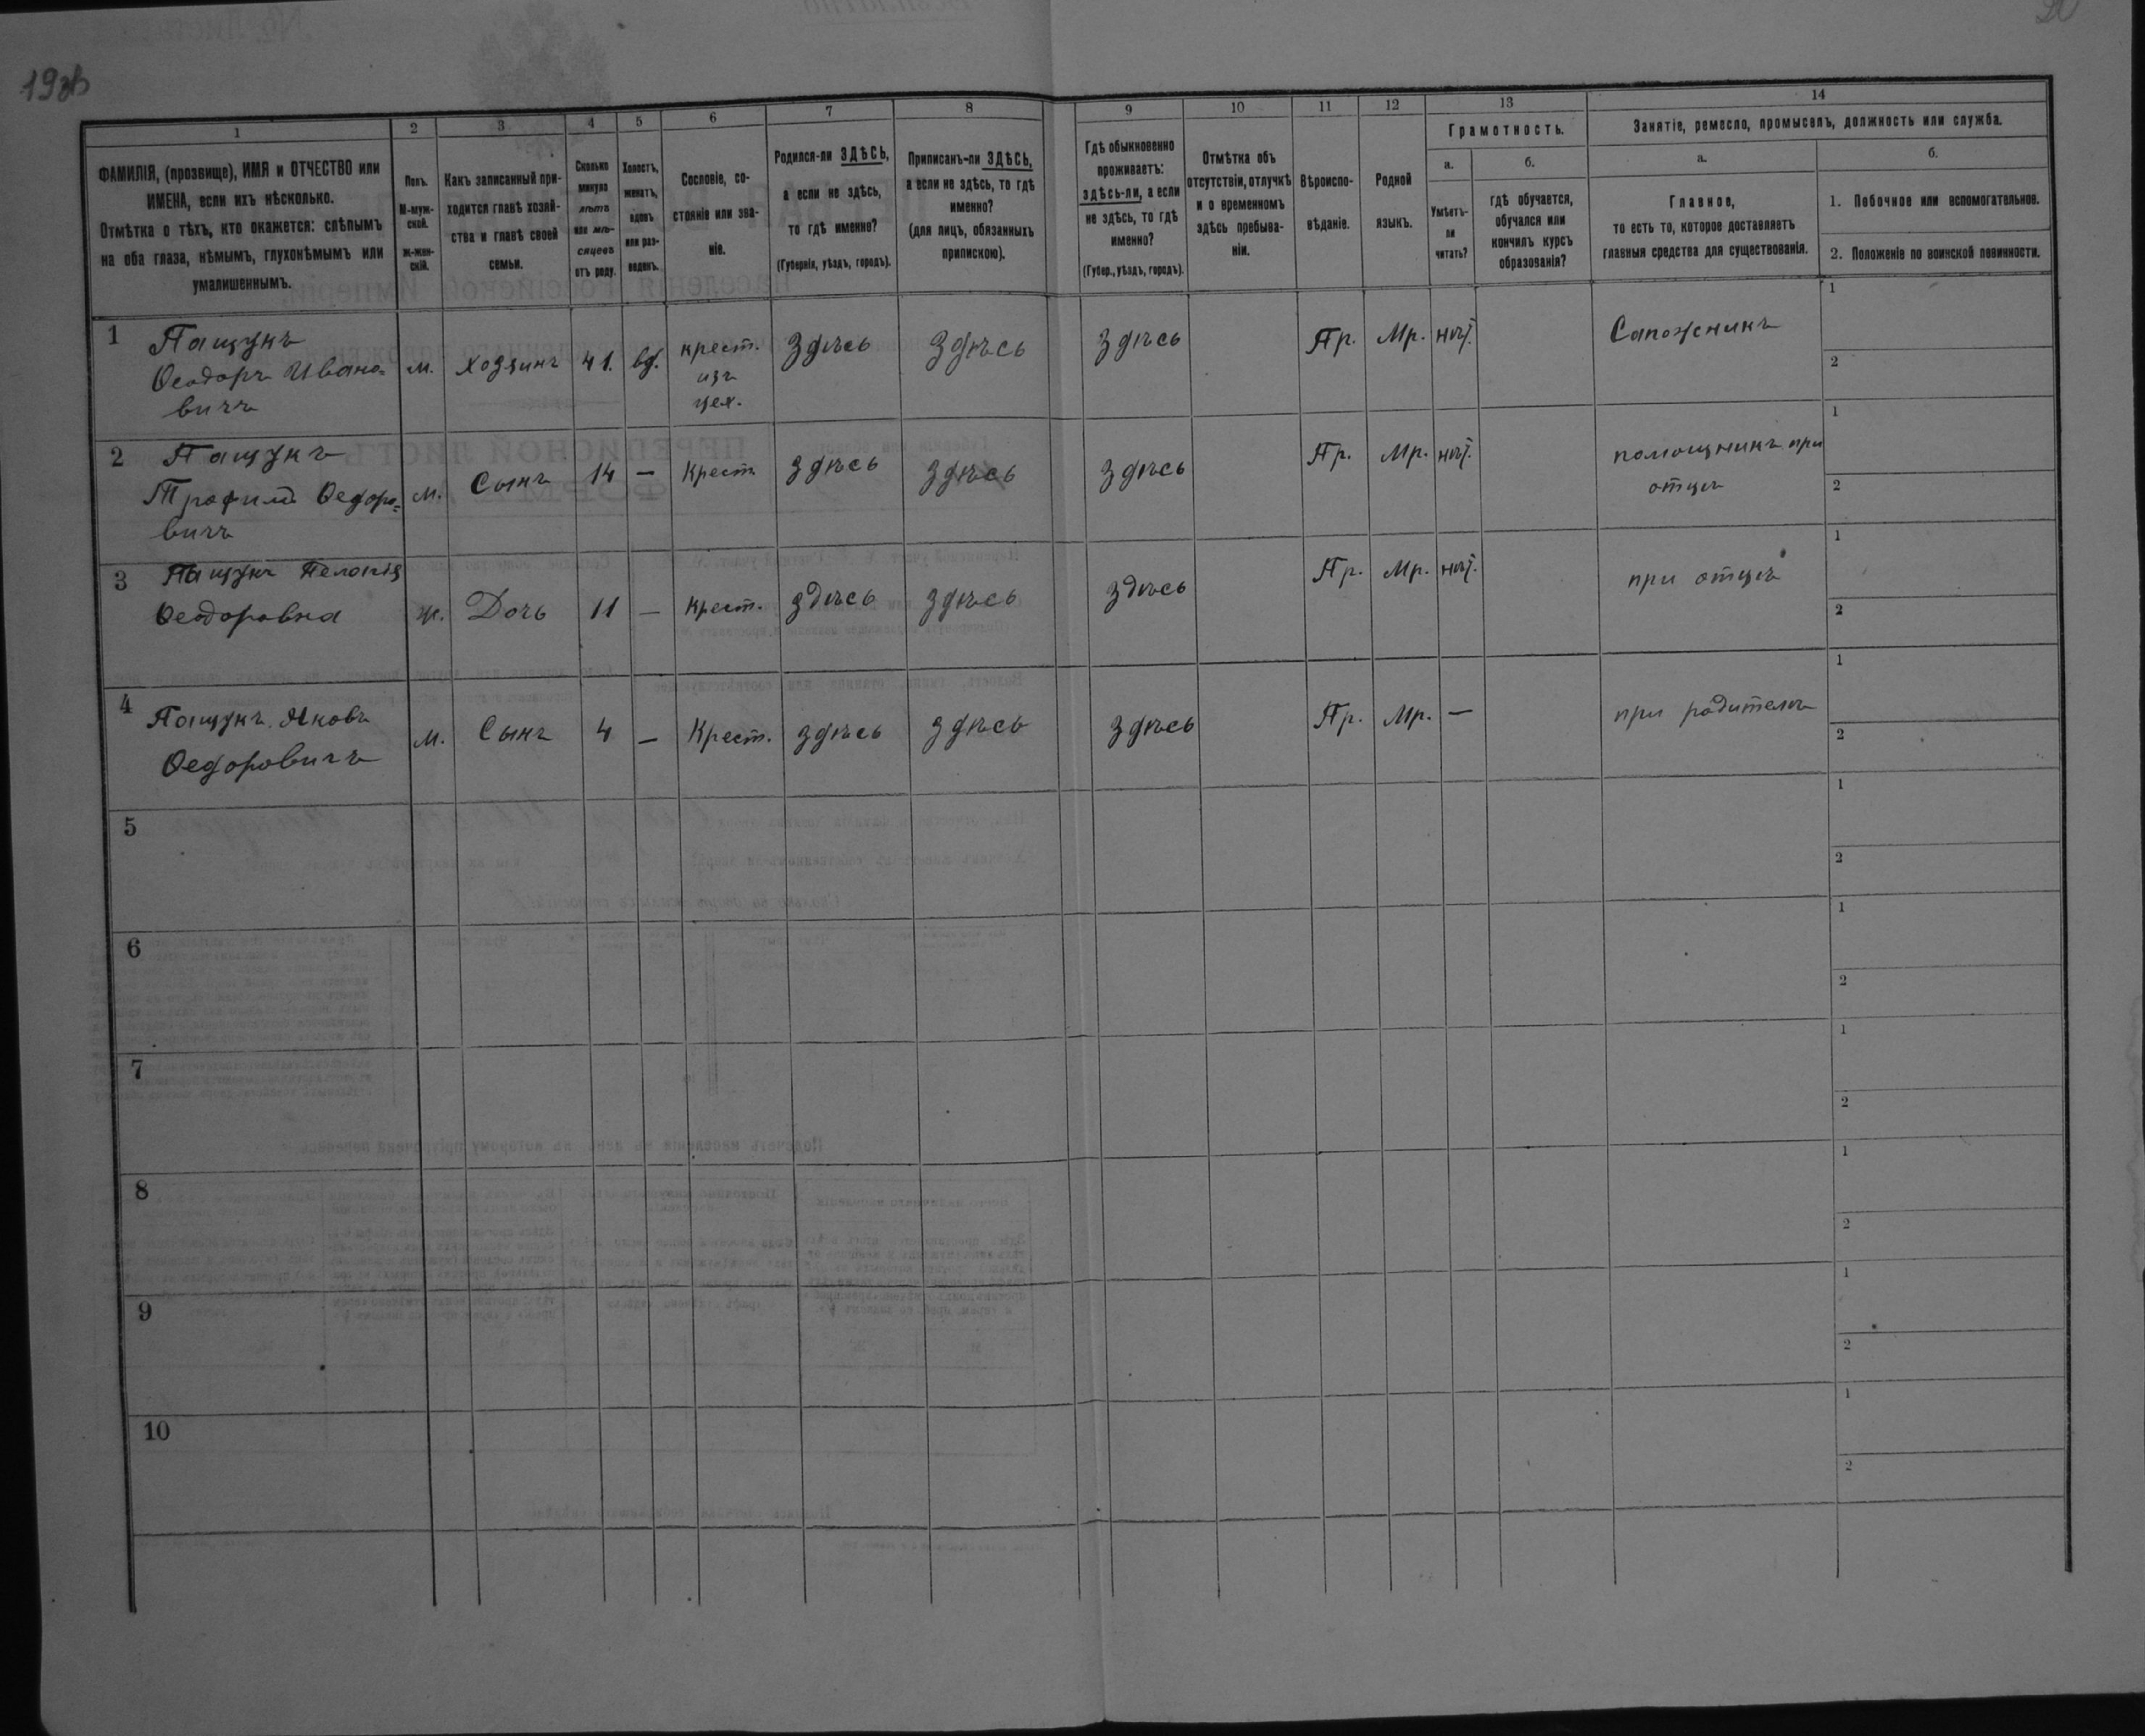 19об
1
2
3
4
5
6
7
8
9
10
11
12
13
14
ФАМИЛІЯ, (прозвище), ИМЯ и ОТЧЕСТВО или
ИМЕНА, если ихъ нѣсколько.
Отмѣтка о тѣхъ, кто окажется: слѣпымъ
на оба глаза, нѣмымъ, глухонѣмымъ или
умалишеннымъ.
Полъ.
М-муж-
ской.
Ж-жен-
скій.
Какъ записанный при-
ходится главѣ хозяй-
ства и главѣ своей
семьи.
Сколько
минуло
лѣтъ
или мѣ-
сяцевъ
отъ роду.
Холостъ,
женатъ,
вдовъ
или раз-
веденъ.
Сословіе, со-
стояніе или зва-
ніе.
Родился-ли ЗДѢСЬ,
а если не здѣсь,
то гдѣ именно?
(Губернія, уѣздъ, городъ).
Приписанъ-ли ЗДѢСЬ,
а если не здѣсь, то гдѣ
именно?
(для лицъ, обязанныхъ
припискою).
Гдѣ обыкновенно
проживаетъ:
здѣсь-ли, а если
не здѣсь, то гдѣ
именно?
(Губер., уѣздъ, городъ).
Отмѣтка объ
отсутствіи, отлучкѣ
и о временномъ
здѣсь пребыва-
ніи.
Вѣроиспо-
вѣданіе.
Родной
языкъ.
Грамотность.
а.
Умѣетъ-
ли
читать?
б.
гдѣ обучается,
обучался или
кончилъ курсъ
образованія?
Занятіе, ремесло, промыселъ, должность или служба.
а.
Главное,
то есть то, которое доставляетъ
главныя средства для существованія.
б.
1. Побочное или вспомогательное.
2. Положеніе по воинской повинности.
1
Пащукъ
Ѳеодоръ Ивано=
вичъ
м.
хозяинъ
41.
вд.
крест.
изъ
цех.
здѣсь
здѣсь
здѣсь
Пр.
Мр.
нѣт.
Сапожникъ
1
2
2
Пащукъ
Трофимъ Ѳедоро=
вичъ
м.
Сынъ
14
—
Крест.
здѣсь
здѣсь
здѣсь
Пр.
Мр.
нѣт.
помощникъ при
отцѣ
1
2
3
Пащукъ Пелагія
Ѳеодоровна
ж.
Дочь
11
—
Крест.
здѣсь
здѣсь
здѣсь
Пр.
Мр.
нѣт.
при отцѣ
1
2
4
Пащукъ Яковъ
Ѳедоровичъ
м.
Сынъ
4
—
Крест.
здѣсь
здѣсь
здѣсь
Пр.
Мр.
—
при родителѣ
1
2
5
1
2
6
1
2
7
1
2
8
1
2
9
1
2
10
1
2